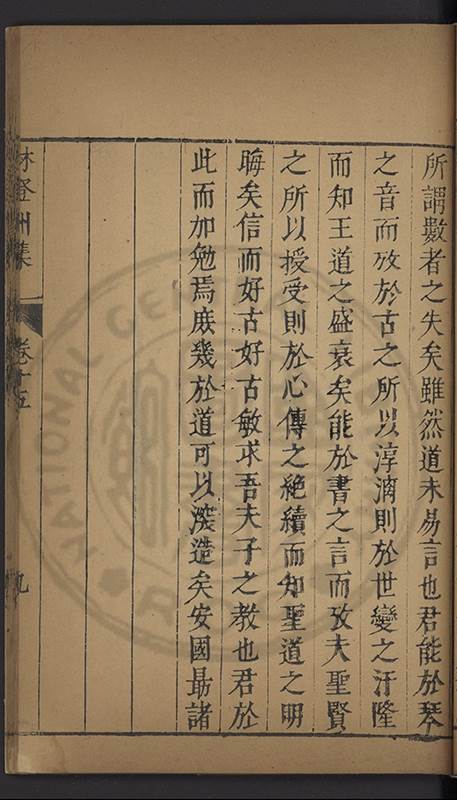 所謂數者之失矣雖然道未易言也君能於琴
之音而攷於古之所以淳漓則於世變之汙隆
而知王道之盛衰矣能於書之言而攷夫聖賢
之所以授受則於心傳之絶續而知聖道之明
晦矣信而好古好古敏求吾夫子之教也君於
此而加勉焉庻幾於道可以深造矣安國勗諸
林登州集
卷十五
九